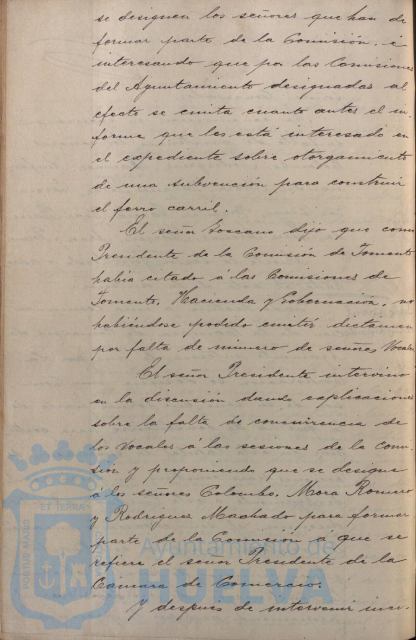 se designen los señores que han de
formar parte de la Comisión, é
interesando que por las Comisiones
del Ayuntamiento designadas al
efecto se emita cuanto antes el in-
forme que les está interesado en
el expediente sobre otorgamiento
de una subvención para construir
el ferro carril.
El señor Toscano dijo que como
Presidente de la Comisión de Fomento
había citado á las Comisiones de
Fomento, Hacienda y Gobernación, no
habiéndose podido emitir dictamen
por falta de número de señores Vocales
El señor Presidente intervino
en la discusión dando explicaciones
sobre la falta de concurrencia de
los Vocales á las sesiones de la Comi-
sión y proponiendo que se designe
á los señores Colombo, Mora Romero
y Rodriguez Machado para formar
parte de la Comisión á que se
refiere el señor Presidente de la
Cámara de Comercio.
Y despues de intervenir
PORTUS MARIS ET TERRAE
Ayuntamiento de
HUELVA